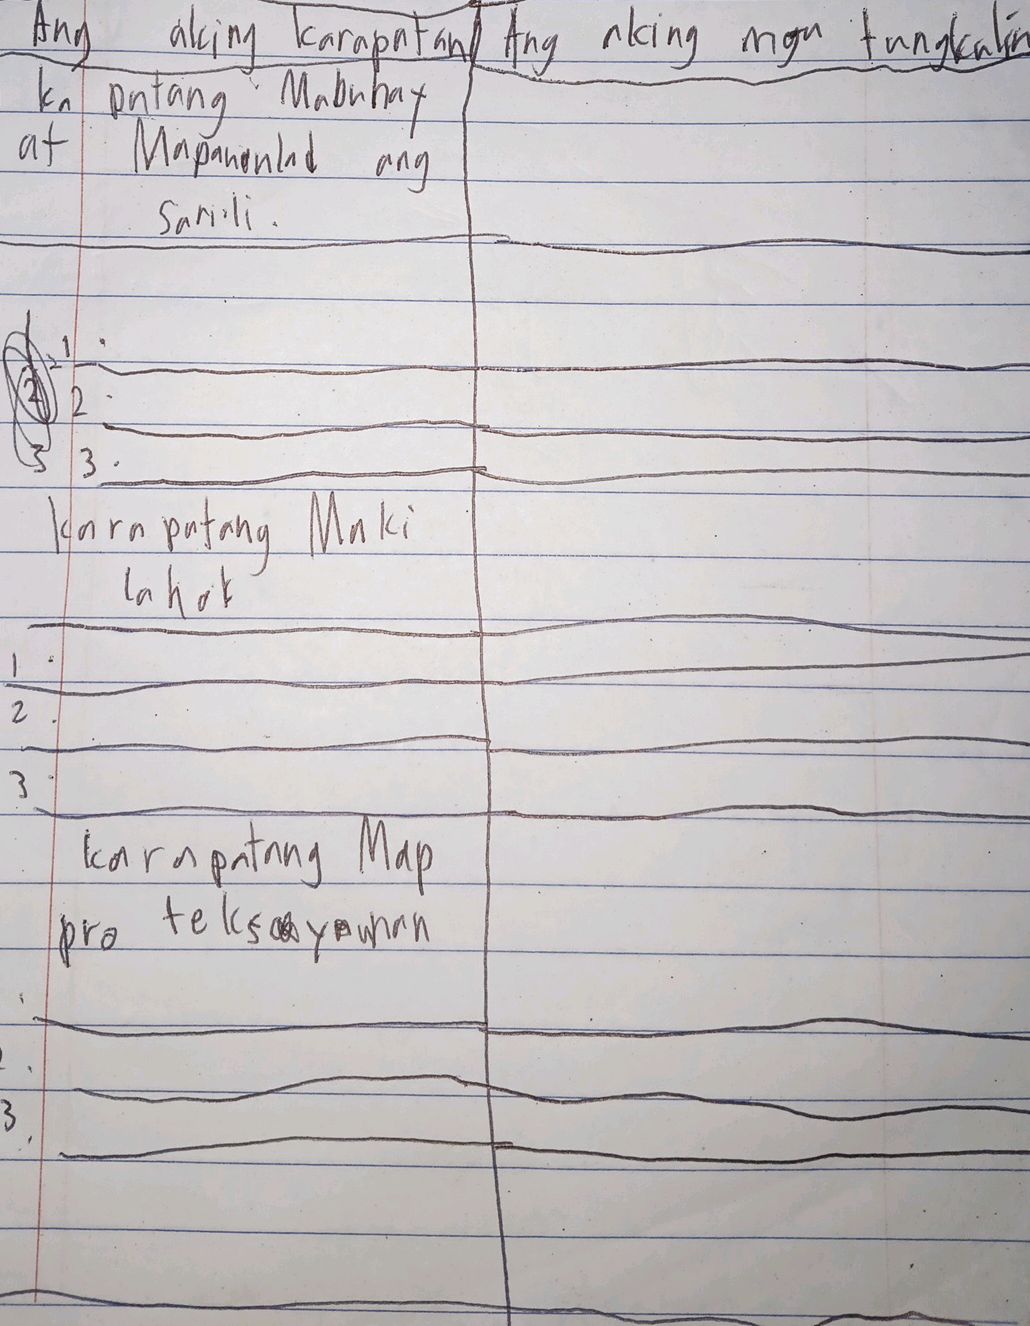 Ang aking karapatan
Ang aking mga tungkulin
ka patang Mabuhay
at Mapaunlad ang
Sarili.
1.
2.
3.
2
3
karapatang Maki
lahok
1.
2.
3.
karapatang Map
pro teksayunan
.
2.
3.